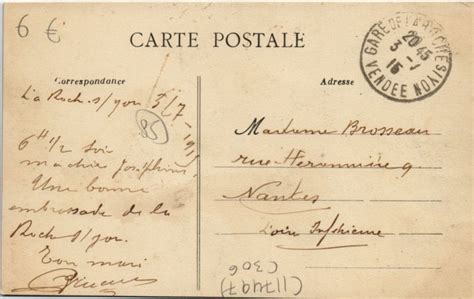 6 €
CARTE POSTALE
GARE DE LA ROCHE S/YON
VENDEE
20 45
3 - 7
15
Correspondance
Adresse
La Roch. s/yon 3/7 - 1915
85
6 H 1/2 soir
ma chère Joséphine
Une bonne
embrassade de la
Roch s/yon.
Ton mari
Madame Brosseau
rue 9
Nantes
Loire Inférieure
(117497)
(306